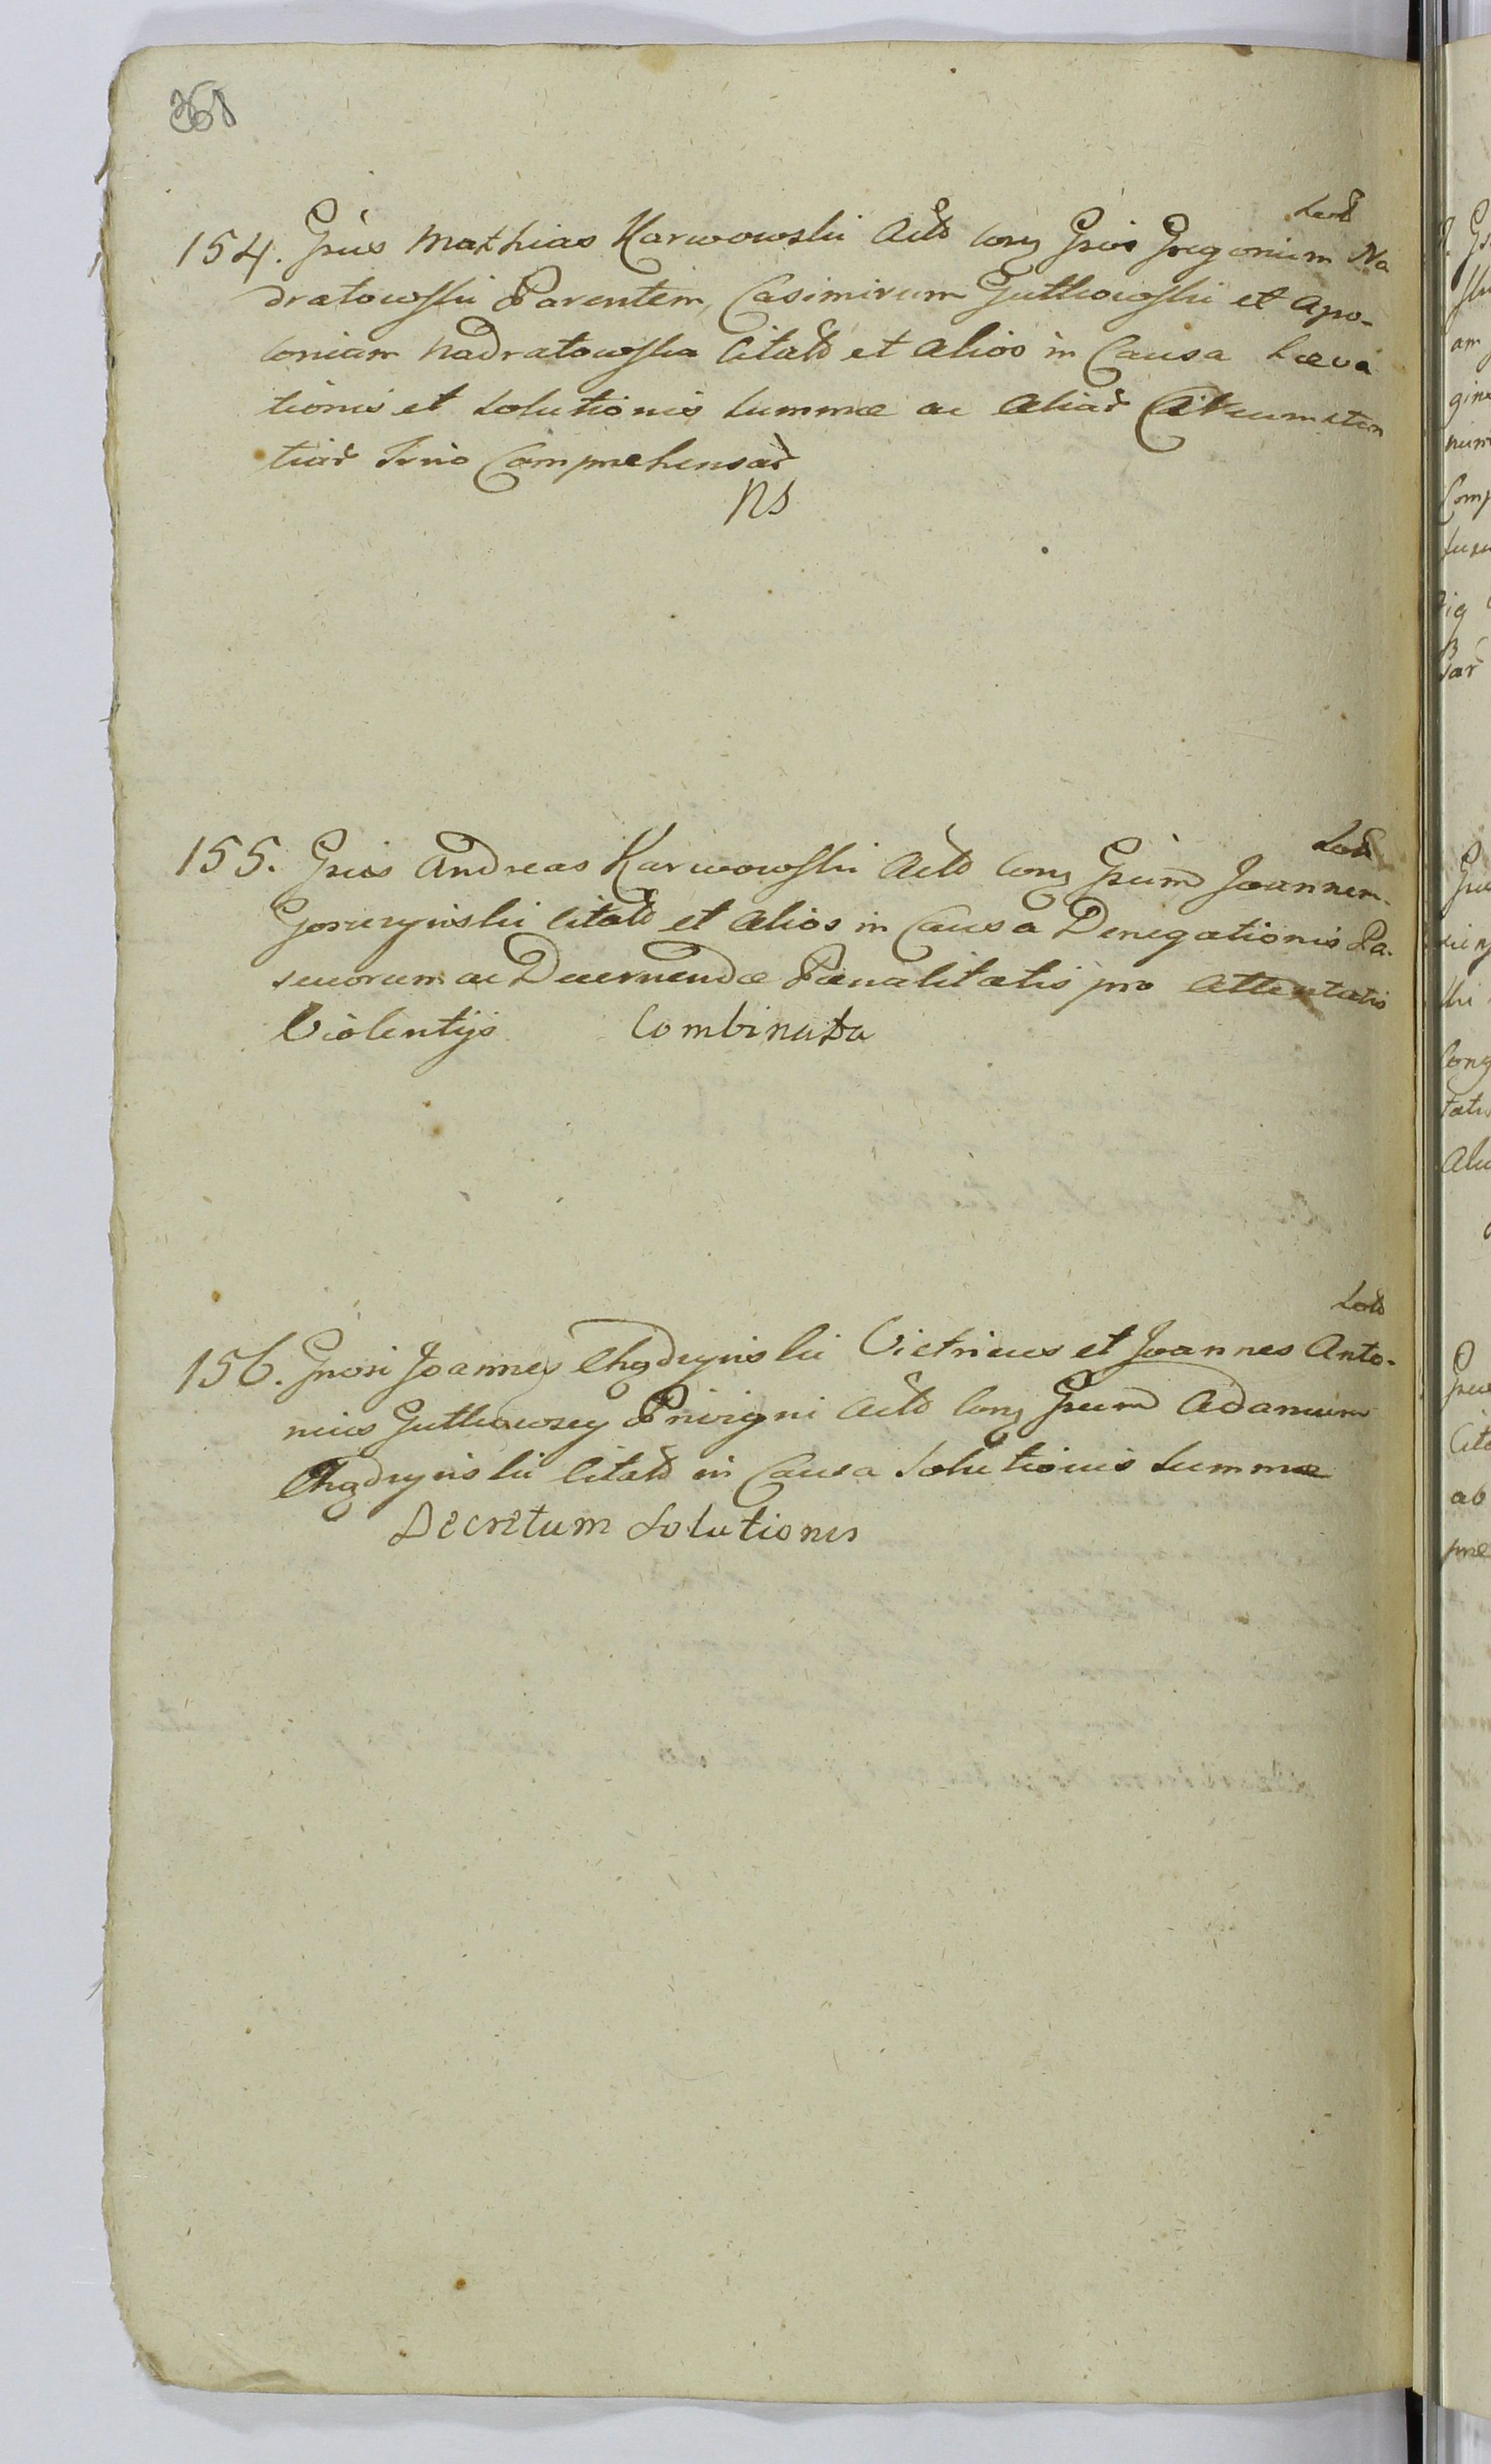 368
154. Grūs Mathias Karwowski Actō Con̄ Grōs Gregorium Na
dratowski Parentem, Casimirum Gutkowski et Apo-
loniam Nadratowska Citatō et alios in Causa Læva
tionis et Solutionis Summæ ac Aliar̄ Circumstan
tiar̄ Trnio Comprehensar̄
NS
155. Grūs Andreas Karwowski Actō Con̄ Grūm Joannem
Goszczynski Citatō et Alios in Causa Denegationis Pa-
scuorum ac Decernendæ Pænalitatis pro Attentatis
Violentijs Combinata
156. Gnosi Joannes Chądzynski Vitricus et Joannes Anto-
nius Gutkowscy Privigni Actō Con̄ Grūm Adamum
Chądzynski Citatō in Causa Solutionis Summæ
Decretum Solutionis